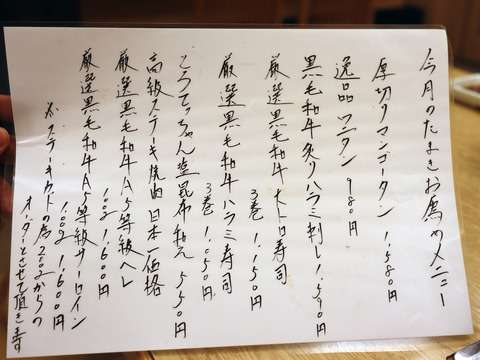 今月のたまきお薦めメニュー
厚切りマンゴータン 1,580円
逸品 ワニタン 980円
黒毛和牛炙りハラミ刺し 1,590円
厳選黒毛和牛大トロ寿司
3巻 1,150円
厳選黒毛和牛ハラミ寿司
3巻 1,050円
こってっちゃん塩昆布和え 550円
高級ステーキ焼肉 日本一価格
厳選黒毛和牛A5等級ヘレ
100g 1,600円
厳選黒毛和牛A5等級サーロイン
100g 1,600円
※ステーキカットの為200gからの
オーダーとさせて頂きます